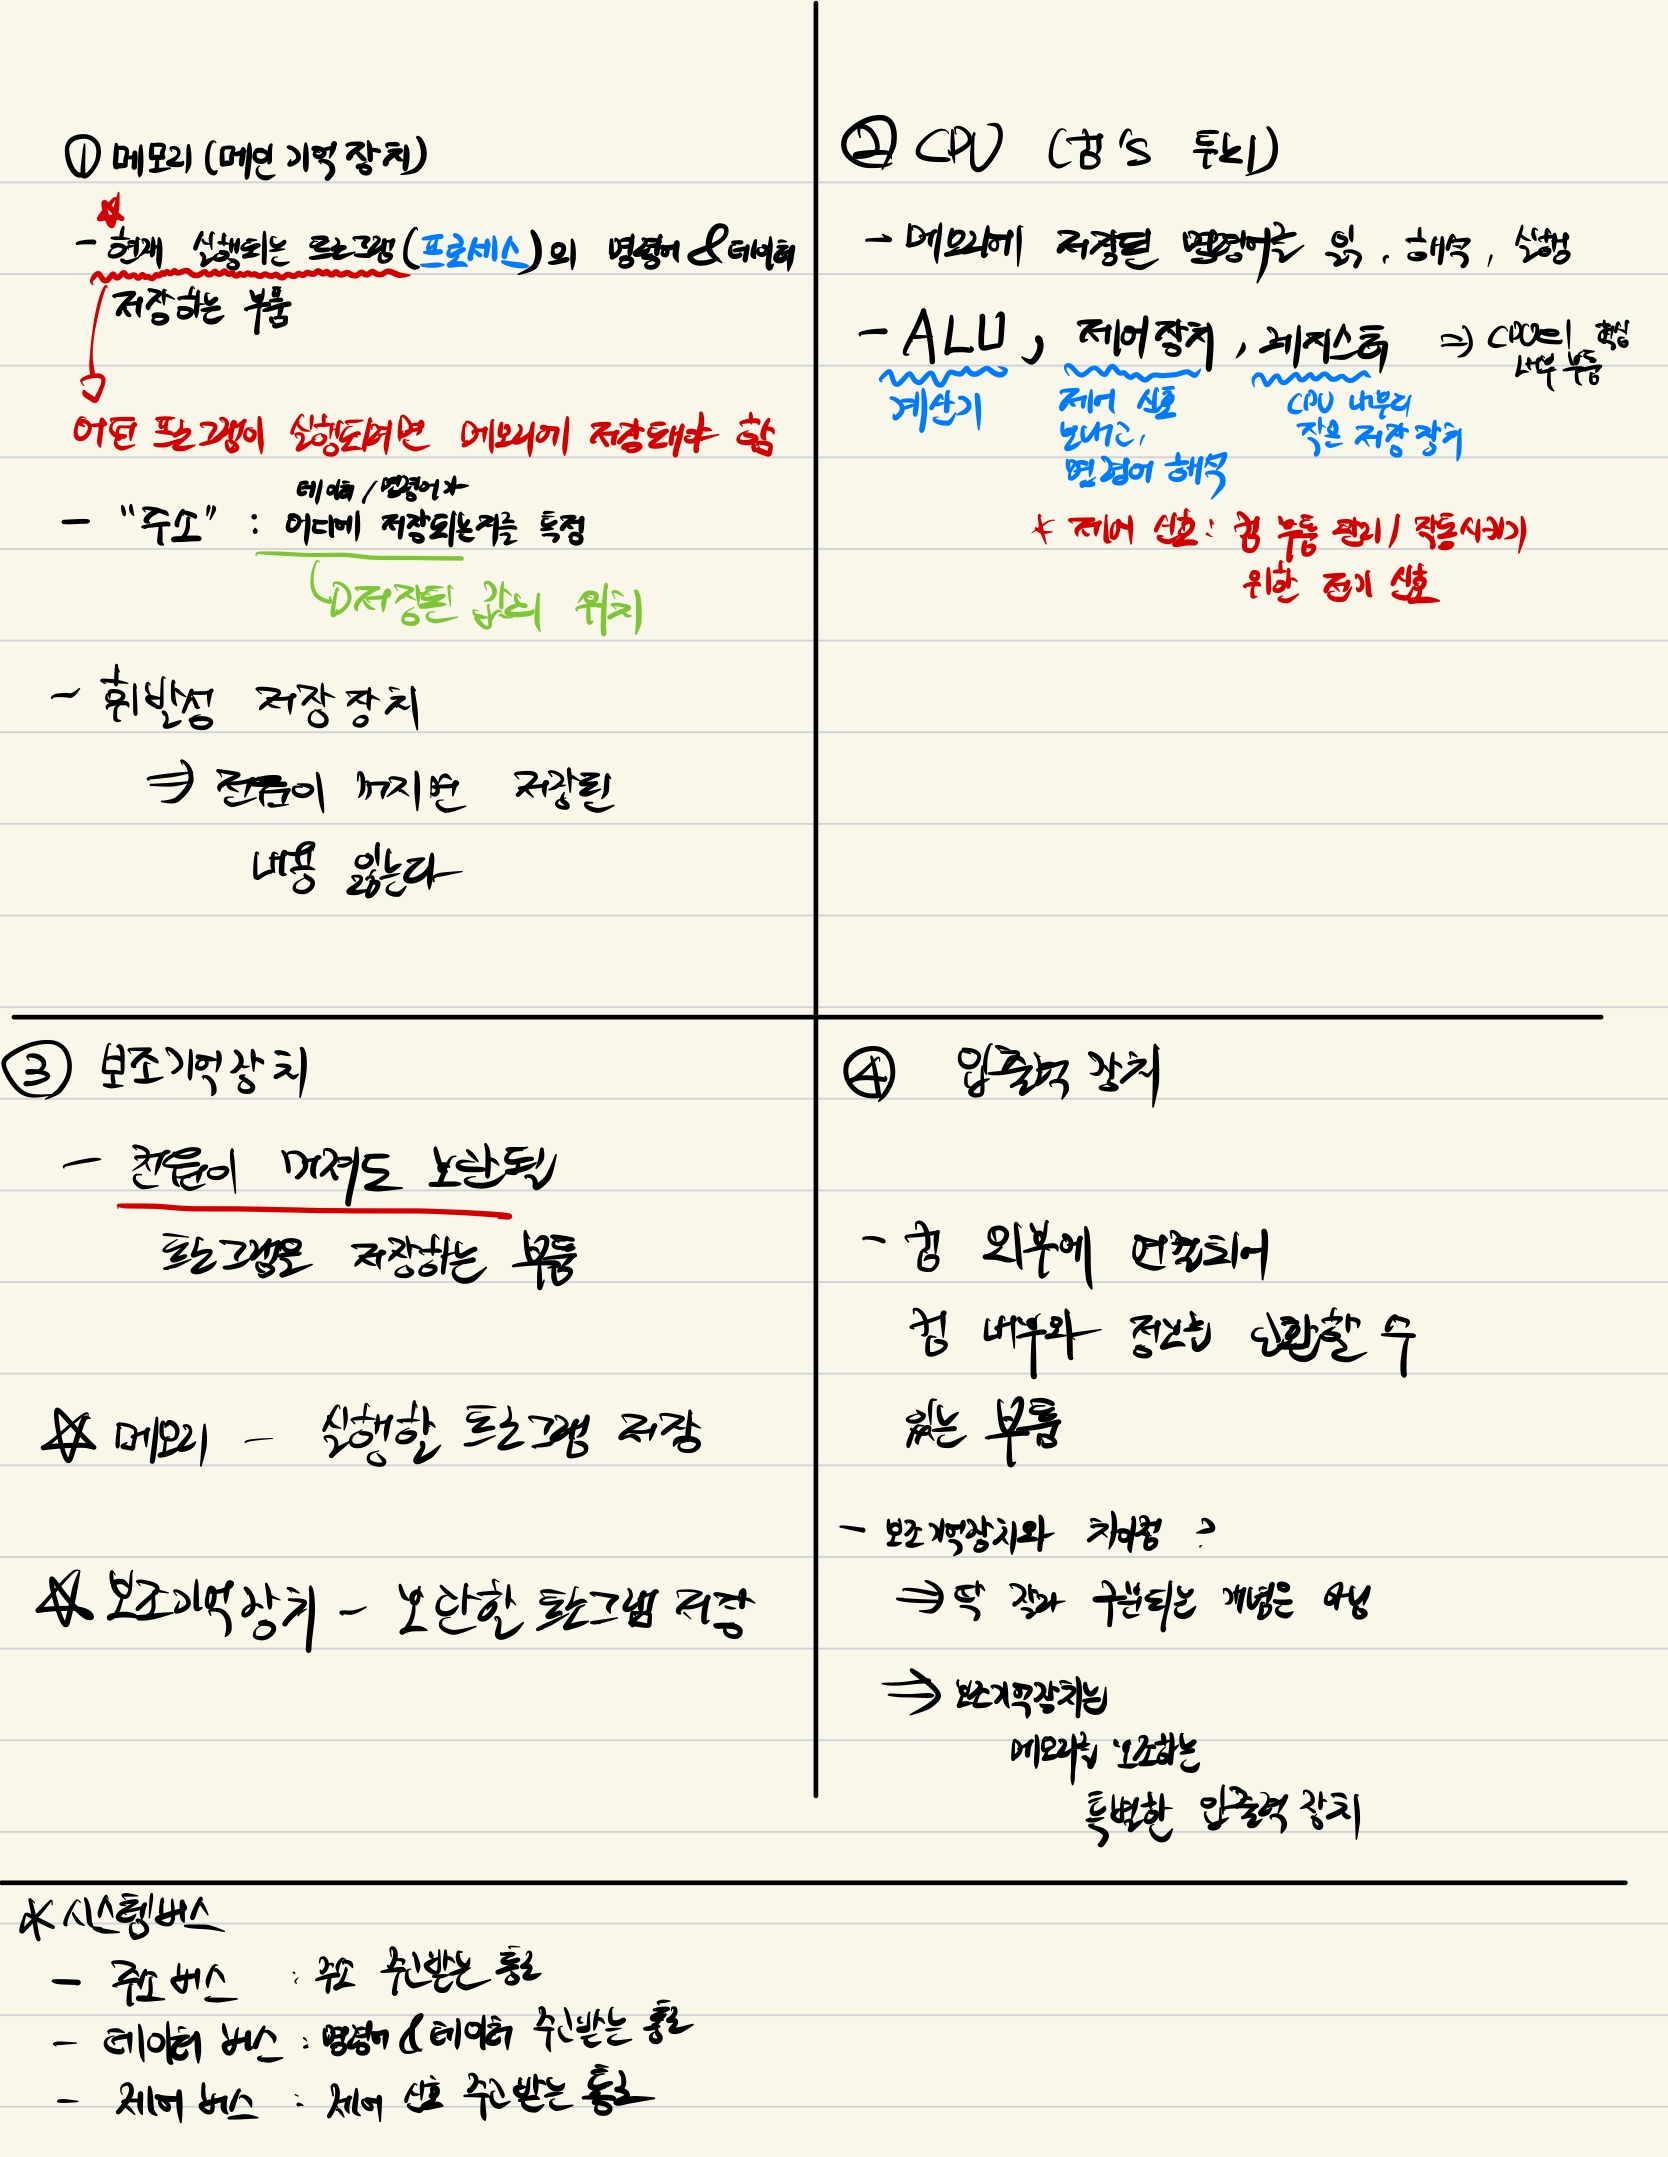 ① 메모리 (메인 기억 장치)
- 현재 실행되는 프로그램 (프로세스)의 명령어 & 데이터
저장하는 부품
어떤 프로그램이 실행되려면 메모리에 저장돼야 함
데이터 / 명령어가
- "주소" : 어디에 저장되는지를 특정
저장된 값의 위치
- 휘발성 저장 장치
⇒ 전원이 꺼지면 저장된
내용 잃는다
② CPU (컴's 두뇌)
- 메모리에 저장된 명령어를 읽, 해석, 실행
- ALU, 제어장치, 레지스터 ⇒ CPU의 핵심
내부 부품
계산기
제어 신호
보내고,
명령어 해석
CPU 내부의
작은 저장 장치
* 제어 신호 : 컴 부품 관리 / 작동시키기
위한 전기 신호
③ 보조기억장치
- 전원이 꺼져도 보관될
프로그램을 저장하는 부품
☆ 메모리 - 실행할 프로그램 저장
☆ 보조기억장치 - 보관할 프로그램 저장
④ 입출력 장치
- 컴 외부에 연결되어
컴 내부와 정보를 교환할 수
있는 부품
- 보조기억장치와 차이점 ?
⇒ 딱 잘라 구분되는 개념은 아님
⇒ 보조기억장치는
메모리를 보조하는
특별한 입출력 장치
* 시스템 버스
- 주소 버스 : 주소 주고받는 통로
- 데이터 버스 : 명령어 & 데이터 주고받는 통로
- 제어 버스 : 제어 신호 주고받는 통로